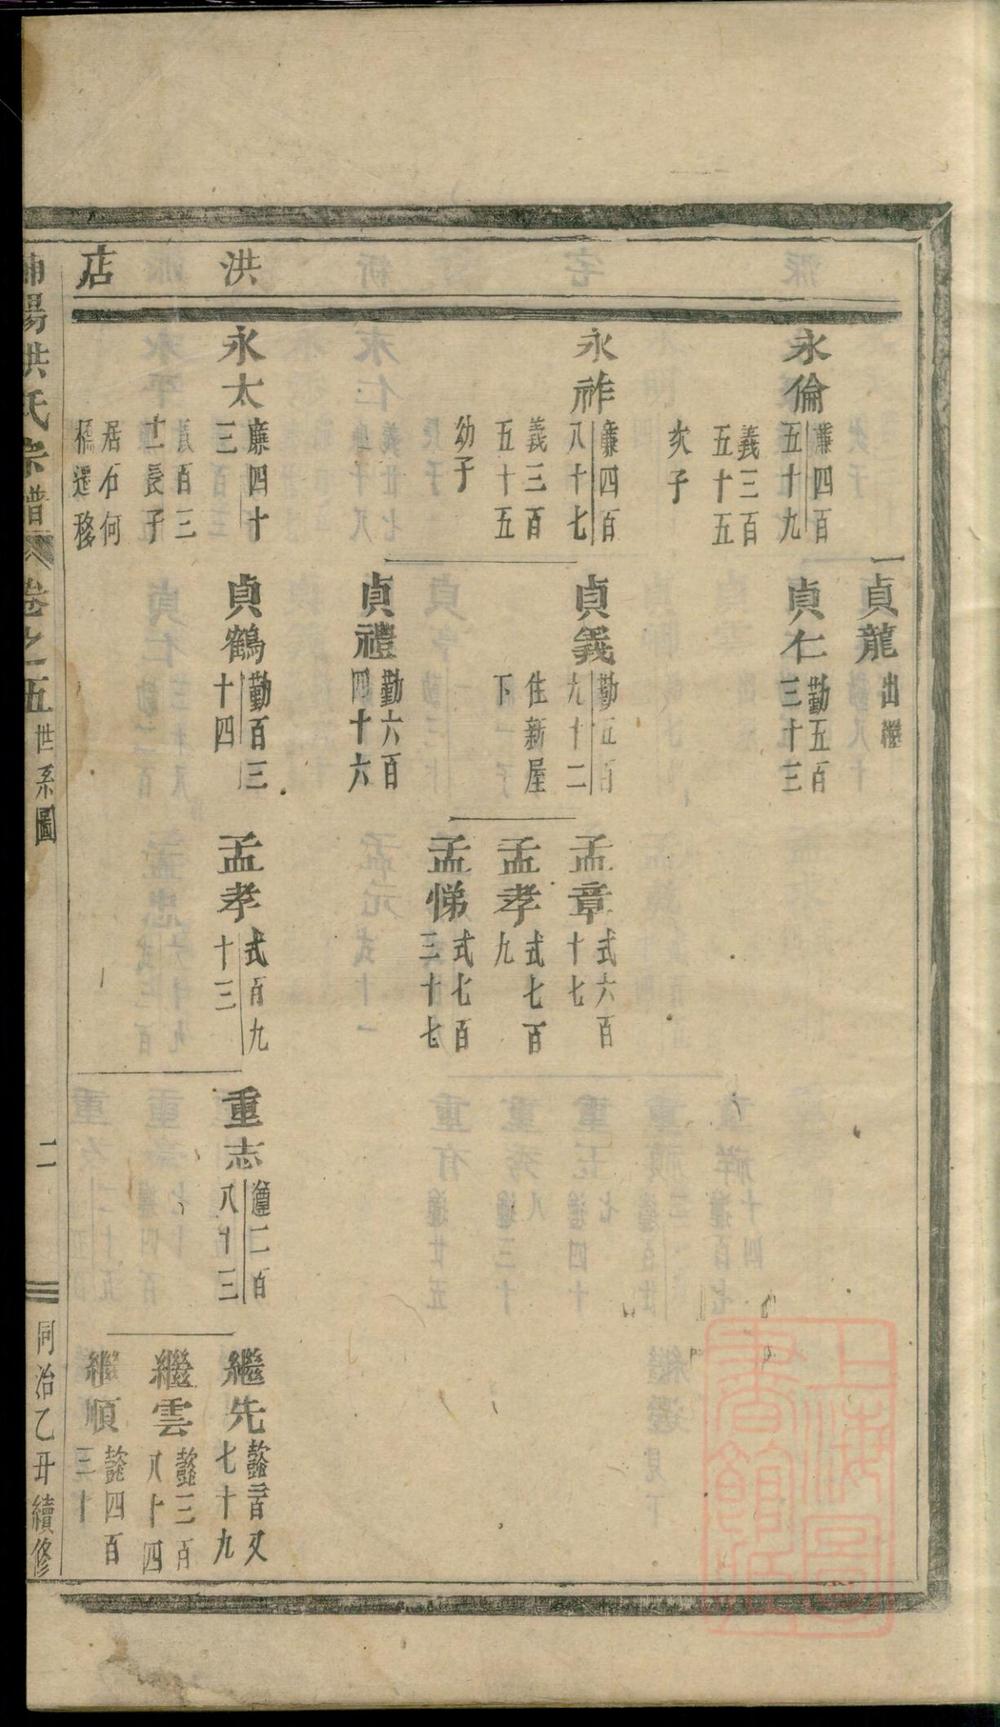 洪店
永倫
廉四百
五十九
義三百
五十五
次子
永祚
廉四百
八十七
義三百
五十五
幼子
永太
廉四十
三
義百三
十一長子
居石何
橋遷移
貞龍
出繼
貞仁
勤五百
三十三
貞義
勤五百
九十二
住新屋
下
貞禮
勤六百
四十六
貞鶴
勤百三
十四
孟章
式六百
十七
孟孝
式七百
九
孟悌
式七百
三十七
孟孝
式百九
十三
重志
八十三
繼先
七十九
繼雲
懿三百
八十四
繼順
懿四百
三十
陽洪氏宗譜
卷之五
世系圖
二
同治乙丑續修
上海圖書館藏